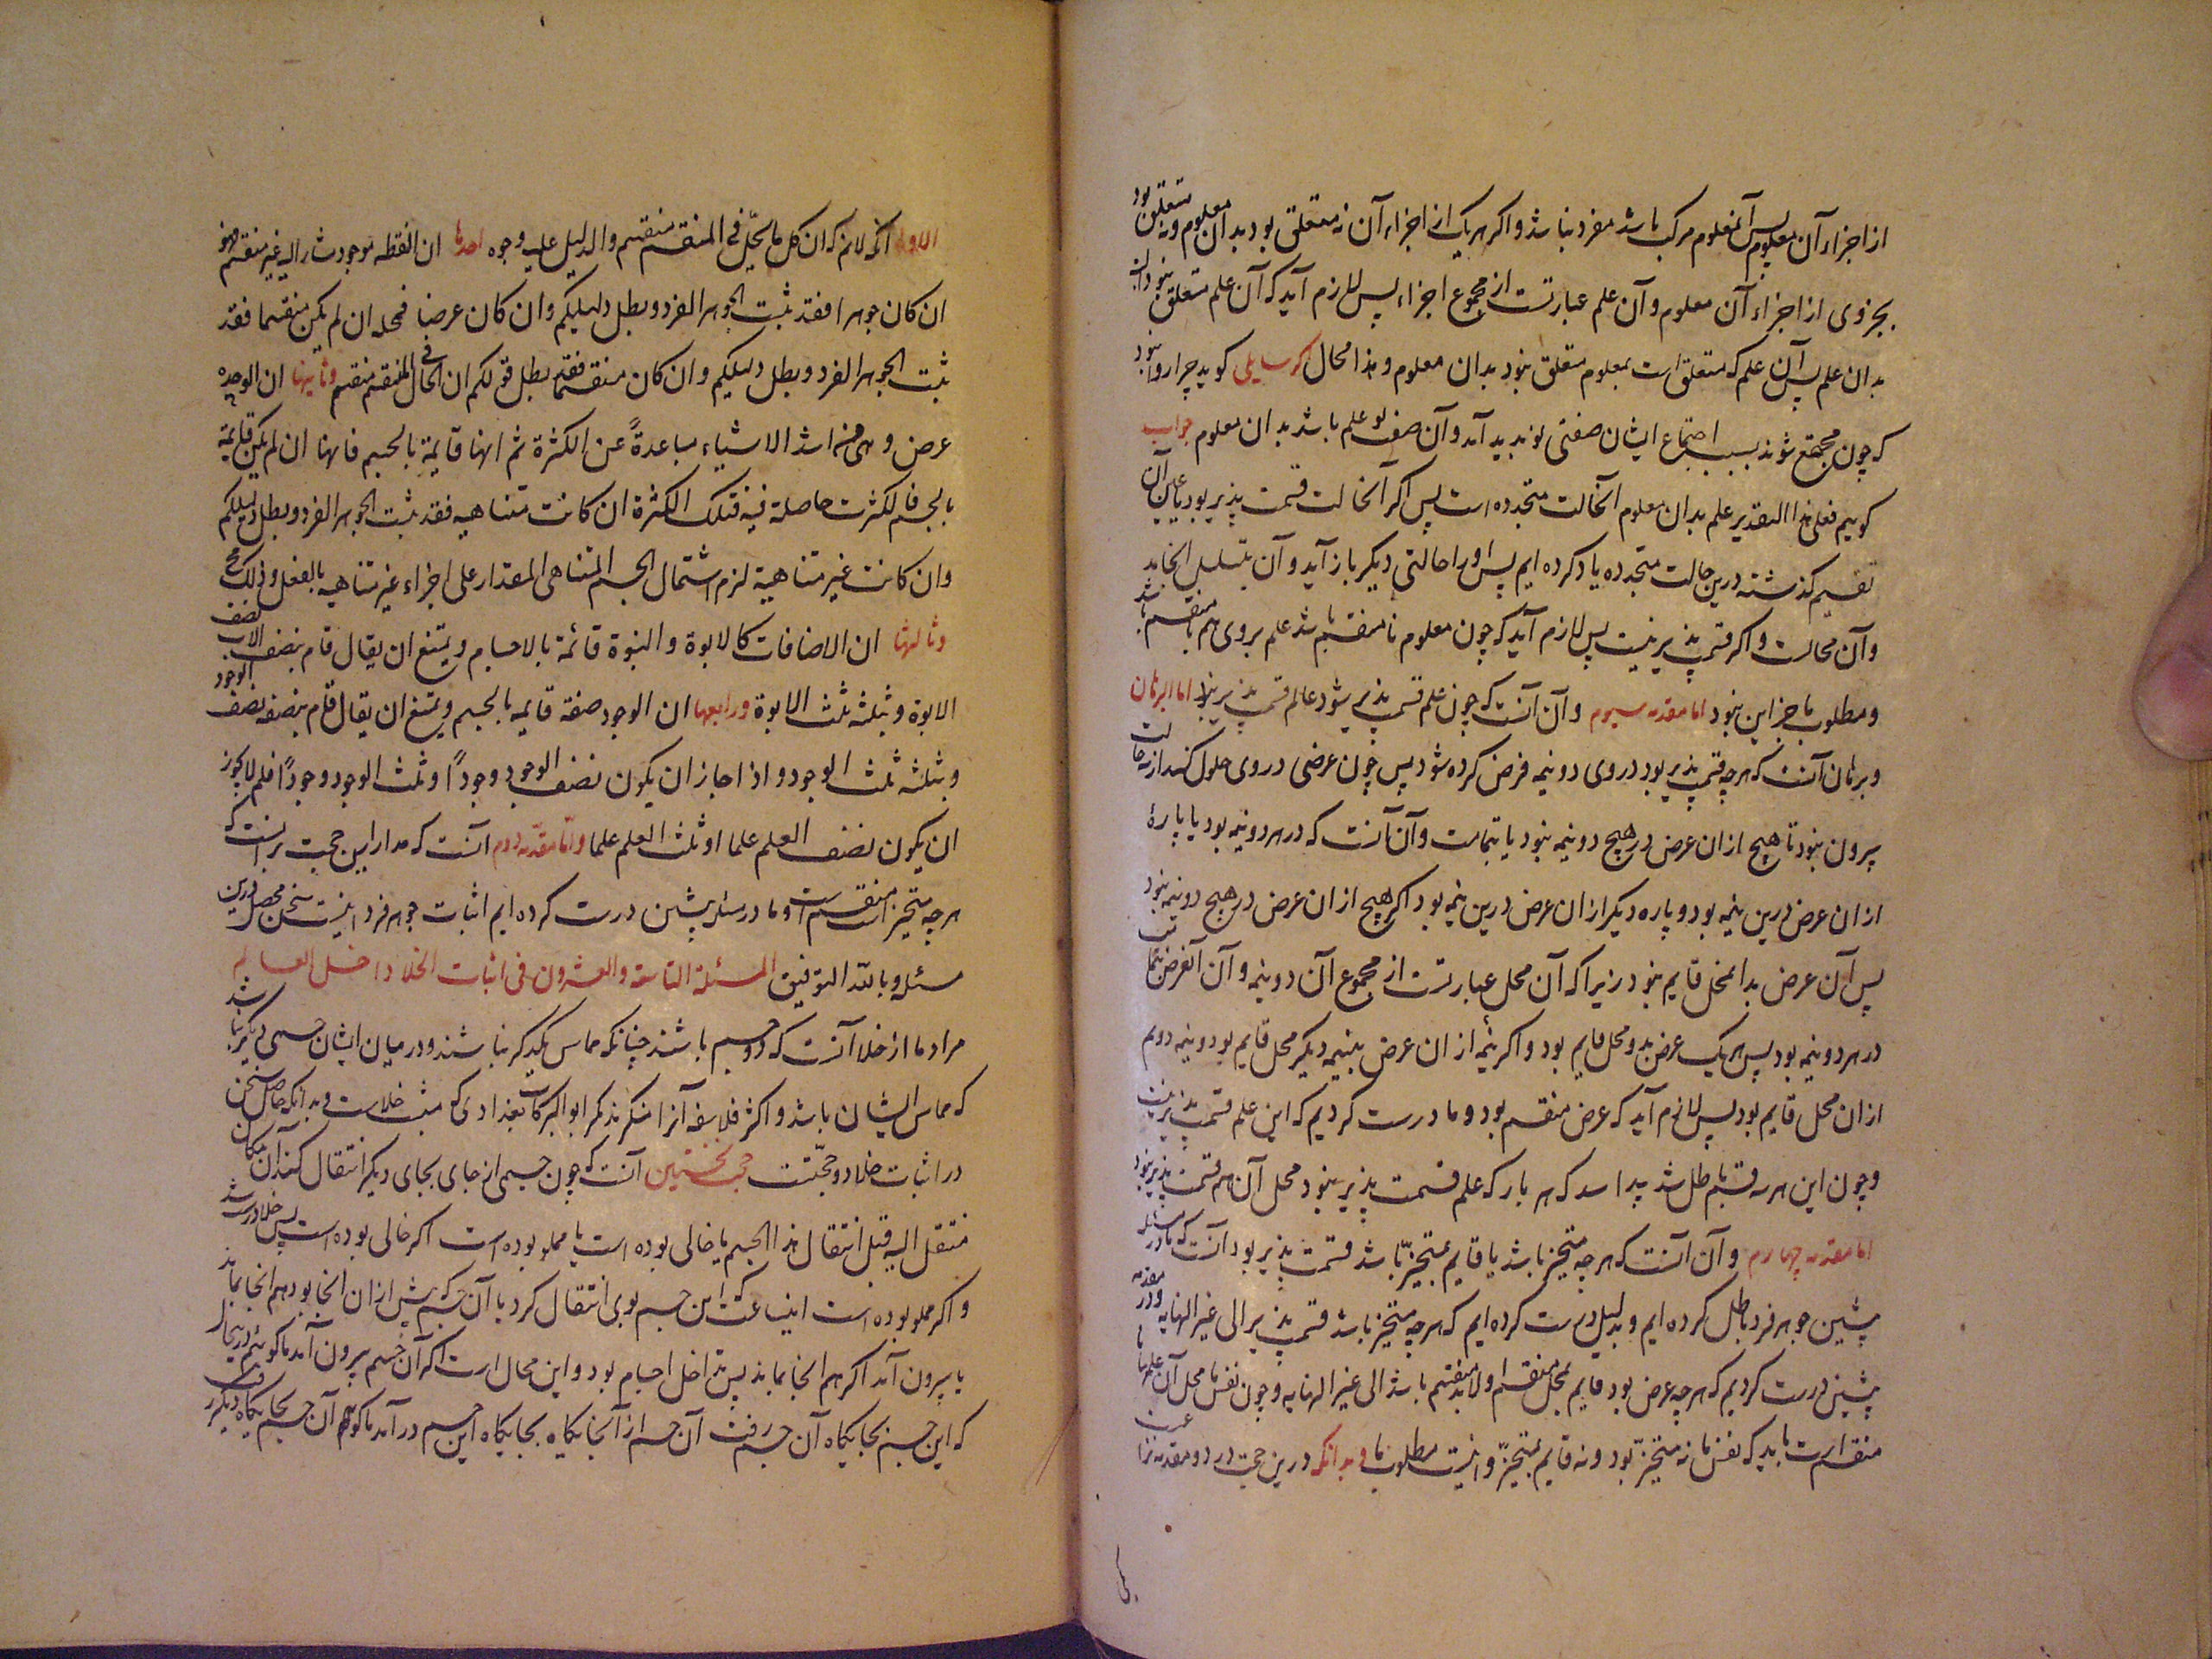 از اجزاء آن معلوم پس آنمعلوم مرکب باشد مفرد نباشد و اکر هر یک از اجزاء آن نه متعلق بود بدان معلوم و نه متعلق بود
بجزوی از اجزاء آن معلوم و آن علم عبارتست از مجموع اجزاء پس لازم آید که آن علم متعلق نبود
بدان علم پس آن علم که متعلق است بمعلوم متعلق نبود بدان معلوم و هذا محال اکر سایلی کوید چرا روا نبود
که چون مجتمع شوند بسبب اجتماع ایشان صفتی نو بدید آید و آن صفت نو علم باشد بدان معلوم جواب
کوییم فعلی هذا التقدیر علم بدان معلوم آنحالت متجدده است پس اکر آنحالت قسمت پذیر بود
تقسیم کذشته درین حالت متجدده یاد کرده ایم پس او را حالتی دیکر باز آید و آن بتسلسل انجامد
و آن محالست و اکر قسمت پذیر نیست پس لازم آید که چون معلوم نامنقسم باشد علم بروی هم نامنقسم باشد
و مطلوب ما جز این نبود اما مقدمه سیوم و آن آنست که چون علم قسمت پذیر نشود عالم قسمت پذیر نبود اما البرهان
و برهان آنست که هرچه قسمت پذیر بود در وی دو نیمه فرض کرده شود پس چون عرضی در وی حلول کند از سه حالت
بیرون نبود تا هیچ از ان عرض در هیچ دو نیمه نبود یا بتمامت و آن آنست که در هر دو نیمه بود یا پارهٔ
از ان عرض درین نیمه بود و پاره دیکر از ان عرض درین نیمه بود اکر هیچ از ان عرض در هیچ دو نیمه نبود
پس آن عرض بدانمحل قایم نبود زیرا که آن محل عبارتست از مجموع آن دو نیمه و آن آنعرض بتمامت
در هر دو نیمه بود پس هر یک عرض بدو محل قایم بود و اکر نیمه از ان عرض بنیمه دیکر محل قایم بود و نیمه دوم
از ان محل قایم بود پس لازم آید که عرض منقسم بود و ما درست کردیم که این علم قسمت پذیر نیست
و چون این هر سه قسم باطل شد پیدا شد که هر بار که علم قسمت پذیر نبود محل آن هم قسمت پذیر نبود
اما مقدمه چهارم و آن آنست که هرچه متحیز باشد یا قایم بمتحیز باشد قسمت پذیر بود آنست که ما در مسئله
پیشین جوهر فرد باطل کرده ایم و بدلیل درست کرده ایم که هرچه متحیز باشد قسمت پذیر الی غیر النهایه و در مقدمه
پیشین درست کردیم که هرچه عرض بود قایم بمحل منقسم او لابد منقسم باشد الی غیر النهایه و چون نفس ما محل آن علم نا
منقسم است باید که نفس ما نه متحیز بود و نه قایم بمتحیز و اینست مطلوب ما و بدانکه درین حجت در دو مقدمه نزاع
الاولی آنکه لانم که ان کل ما یحل فی المنقسم منقسم و الدلیل علیه وجوه احدها ان النقطه موجود مشار الیه غیر منقسم
ان کان جوهرا فقد ثبت الجوهر الفرد و بطل دلیلکم و ان کان عرضا فمحله ان لم یکن منقسما فقد
ثبت الجوهر الفرد و بطل دلیلکم و ان کان منقسما فقد بطل قولکم ان الحال فی المنقسم منقسم و ثانیها ان الوحده
عرض و هی من اشد الاشیاء مباعدةً عن الکثرة ثم انها قایمة بالجسم فانها ان لم یکن قایمة
بالجسم فالکثرت حاصلة فیه فتلک الکثرة ان کانت متناهیه فقد ثبت الجوهر الفرد و بطل دلیلکم
و ان کانت غیر متناهیة لزم اشتمال الجسم المتناهی المقدار علی اجزاء غیر متناهیه بالفعل و ذلک مح
و ثالثها ان الاضافات کالابوة و البنوة قائمة بالاجسام و یمتنع ان یقال قام بنصف الاب نصف
الابوة و بثلثه ثلث الابوة و رابعها ان الوجود صفة قایمه بالجسم و یمتنع ان یقال قام بنصفه نصف الوجود
و بثلثه ثلث الوجود و اذا جاز ان یکون نصف الوجود وجوداً و ثلث الوجود وجوداً فلم لا یجوز
ان یکون نصف العلم علما او ثلث العلم علما و اما مقدمه دوم آنست که مدار این حجت بر آنست که
هرچه متحیز است منقسم است و ما در مسئله پیشین درست کرده ایم اثبات جوهر فرد اینست سخن محصل درین
مسئله و بالله التوفیق المسئلة التاسعة و العشرون فی اثبات الخلاء داخل العالم
مراد ما از خلا آنست که دو جسم باشند چنانکه مماس یکدیکر نباشند و در میان ایشان جسمی دیکر نباشد
که مماس ایشان باشد و اکثر فلاسفه آنرا منکرند مکر ابو البرکات بغدادی که مثبت خلاست و بدانکه حاصل سخن
در اثبات خلا دو حجتست حجت نخستین آنست که چون جسمی از جای بجای دیکر انتقال کند آن مکان
منتقل الیه قبل انتقال هذا الجسم یا خالی بوده است یا مملو بوده است اکر خالی بوده است پس خلا درست شد
و اکر مملو بوده است اینساعت که این جسم بوی انتقال کرد یا آن جسم که پیش از ان انجا بود هم انجا بماند
یا بیرون آمد اکر هم انجا بماند پس تداخل اجسام بود و این محال است اکر آن جسم بیرون آمد ما کوئیم در آنحال
که این جسم بجایکاه آن جسم رفت آن جسم از آنجایکاه بجایکاه این جسم در آمد یا کوئیم آن جسم بجایکاه دیکر رفت